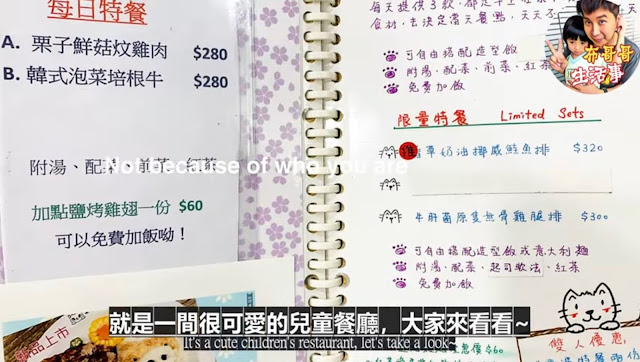 每日特餐
A. 栗子鮮菇炆雞肉 $280
B. 韓式泡菜培根牛 $280
附湯、配菜、前菜、紅茶
加點鹽烤雞翅一份 $60
可以免費加飯呦！
新品上市
每天提供3款,都是早上
食材,去決定當天餐點,天天
可自由搭配造型飯
附湯、配菜、前菜、紅茶
免費加飯
限量特餐 Limited Sets
草奶油挪威鮭魚排 $320
牛肝菌原隻無骨雞腿排 $300
可自由搭配造型飯或意大利麵
附湯、配菜、起司軟法、紅茶
免費加飯
雙人優惠,
布哥哥
生活事
Not because of who you are
就是一間很可愛的兒童餐廳，大家來看看~
It's a cute children's restaurant, let's take a look~